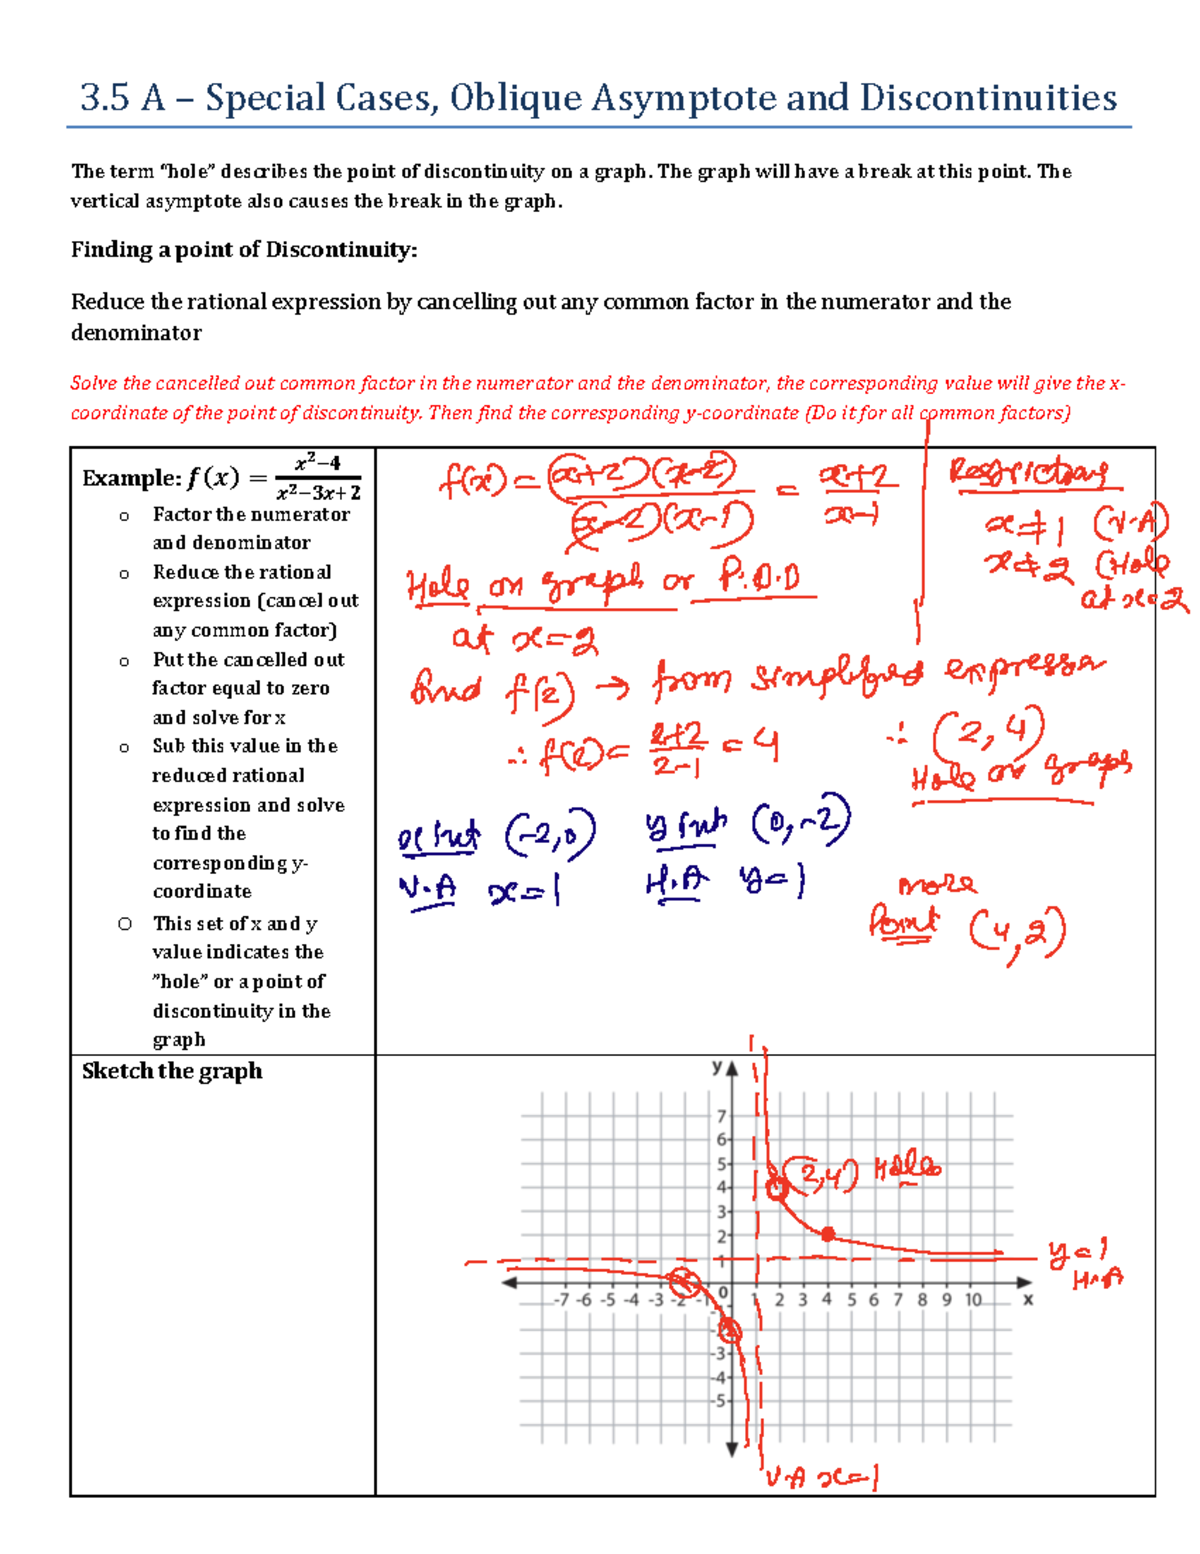 3.5 A – Special Cases, Oblique Asymptote and Discontinuities
The term “hole” describes the point of discontinuity on a graph. The graph will have a break at this point. The
vertical asymptote also causes the break in the graph.
Finding a point of Discontinuity:
Reduce the rational expression by cancelling out any common factor in the numerator and the
denominator
Solve the cancelled out common factor in the numerator and the denominator, the corresponding value will give the x-
coordinate of the point of discontinuity. Then find the corresponding y-coordinate (Do it for all common factors)
Example: f(x) = (x²−4)/(x²−3x+2)
o Factor the numerator
and denominator
o Reduce the rational
expression (cancel out
any common factor)
o Put the cancelled out
factor equal to zero
and solve for x
o Sub this value in the
reduced rational
expression and solve
to find the
corresponding y-
coordinate
o This set of x and y
value indicates the
”hole” or a point of
discontinuity in the
graph
f(x) = (x+2)(x-2)/(x-2)(x-1) = x+2/x-1
Restrictions
x≠1 (V.A)
x≠2 (Hole
at x=2
Hole on graph or P.O.D
at x=2
find f(2) → from simplified expression
∴ f(2) = 2+2/2-1 = 4
∴ (2,4)
Hole on graph
x int (-2,0) y int (0,-2)
V.A x=1 H.A y=1
more
Point (4,2)
Sketch the graph
y
7
6
5
4
3
2
1
0
-3
-4
-5
-7 -6 -5 -4 -3 -2 -1 1 2 3 4 5 6 7 8 9 10 x
(2,4) Hole
y=1
H.A
V.A x=1